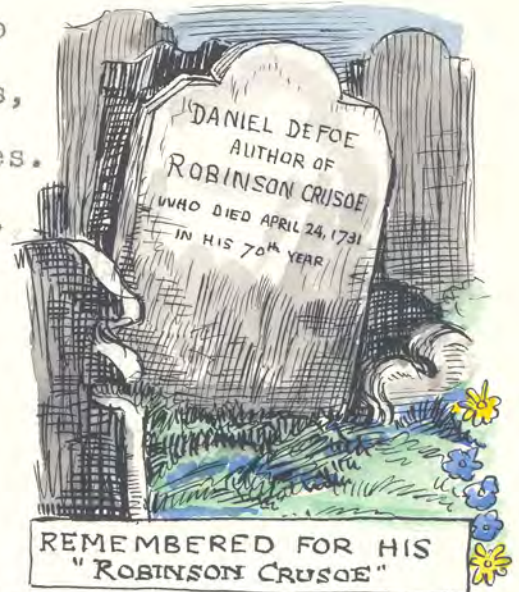 s,
es.
"DANIEL DEFOE
AUTHOR OF
ROBINSON CRUSOE
WHO DIED APRIL 24, 1731
IN HIS 70th YEAR
REMEMBERED FOR HIS
"ROBINSON CRUSOE"